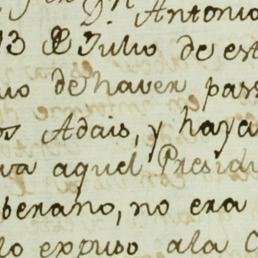 Dn Antonio
13 de Julio de est
de haver pas
os Adais, y haya
va aquel Presid
berano, no era
lo expuso ala C